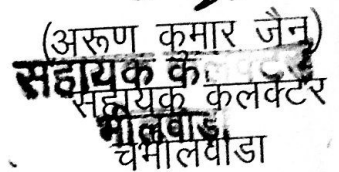 (अरूण कुमार जैन)
सहायक क
सहायक कलेक्टर
भीलवाड
भीलवाडा